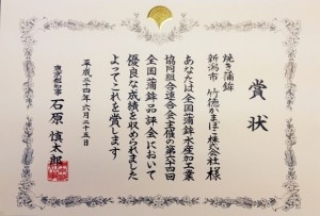 賞状
焼き蒲鉾
新潟市 竹徳かまぼこ株式会社 様
あなたは全国蒲鉾水産加工業
協同組合連合会主催の第六十四回
全国蒲鉾品評会において
優良な成績を収められました
よってこれを賞します
平成二十四年六月二十五日
東京都知事 石原慎太郎